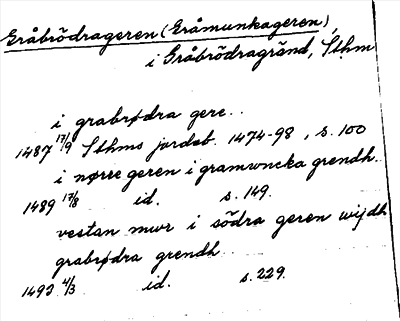 Gråbrödrageren (Gråmunkageren),
i Gråbrödragränd, Sthm
i grabrødra gere..
1487 17/9 Sthms jordeb. 1474-98, s. 100
i nørre geren i gramwncka grendh..
1489 17/8 id. s. 149.
vestan mwr i södra geren wijdh
grabrødra grendh..
1492 4/3 id. s. 229.